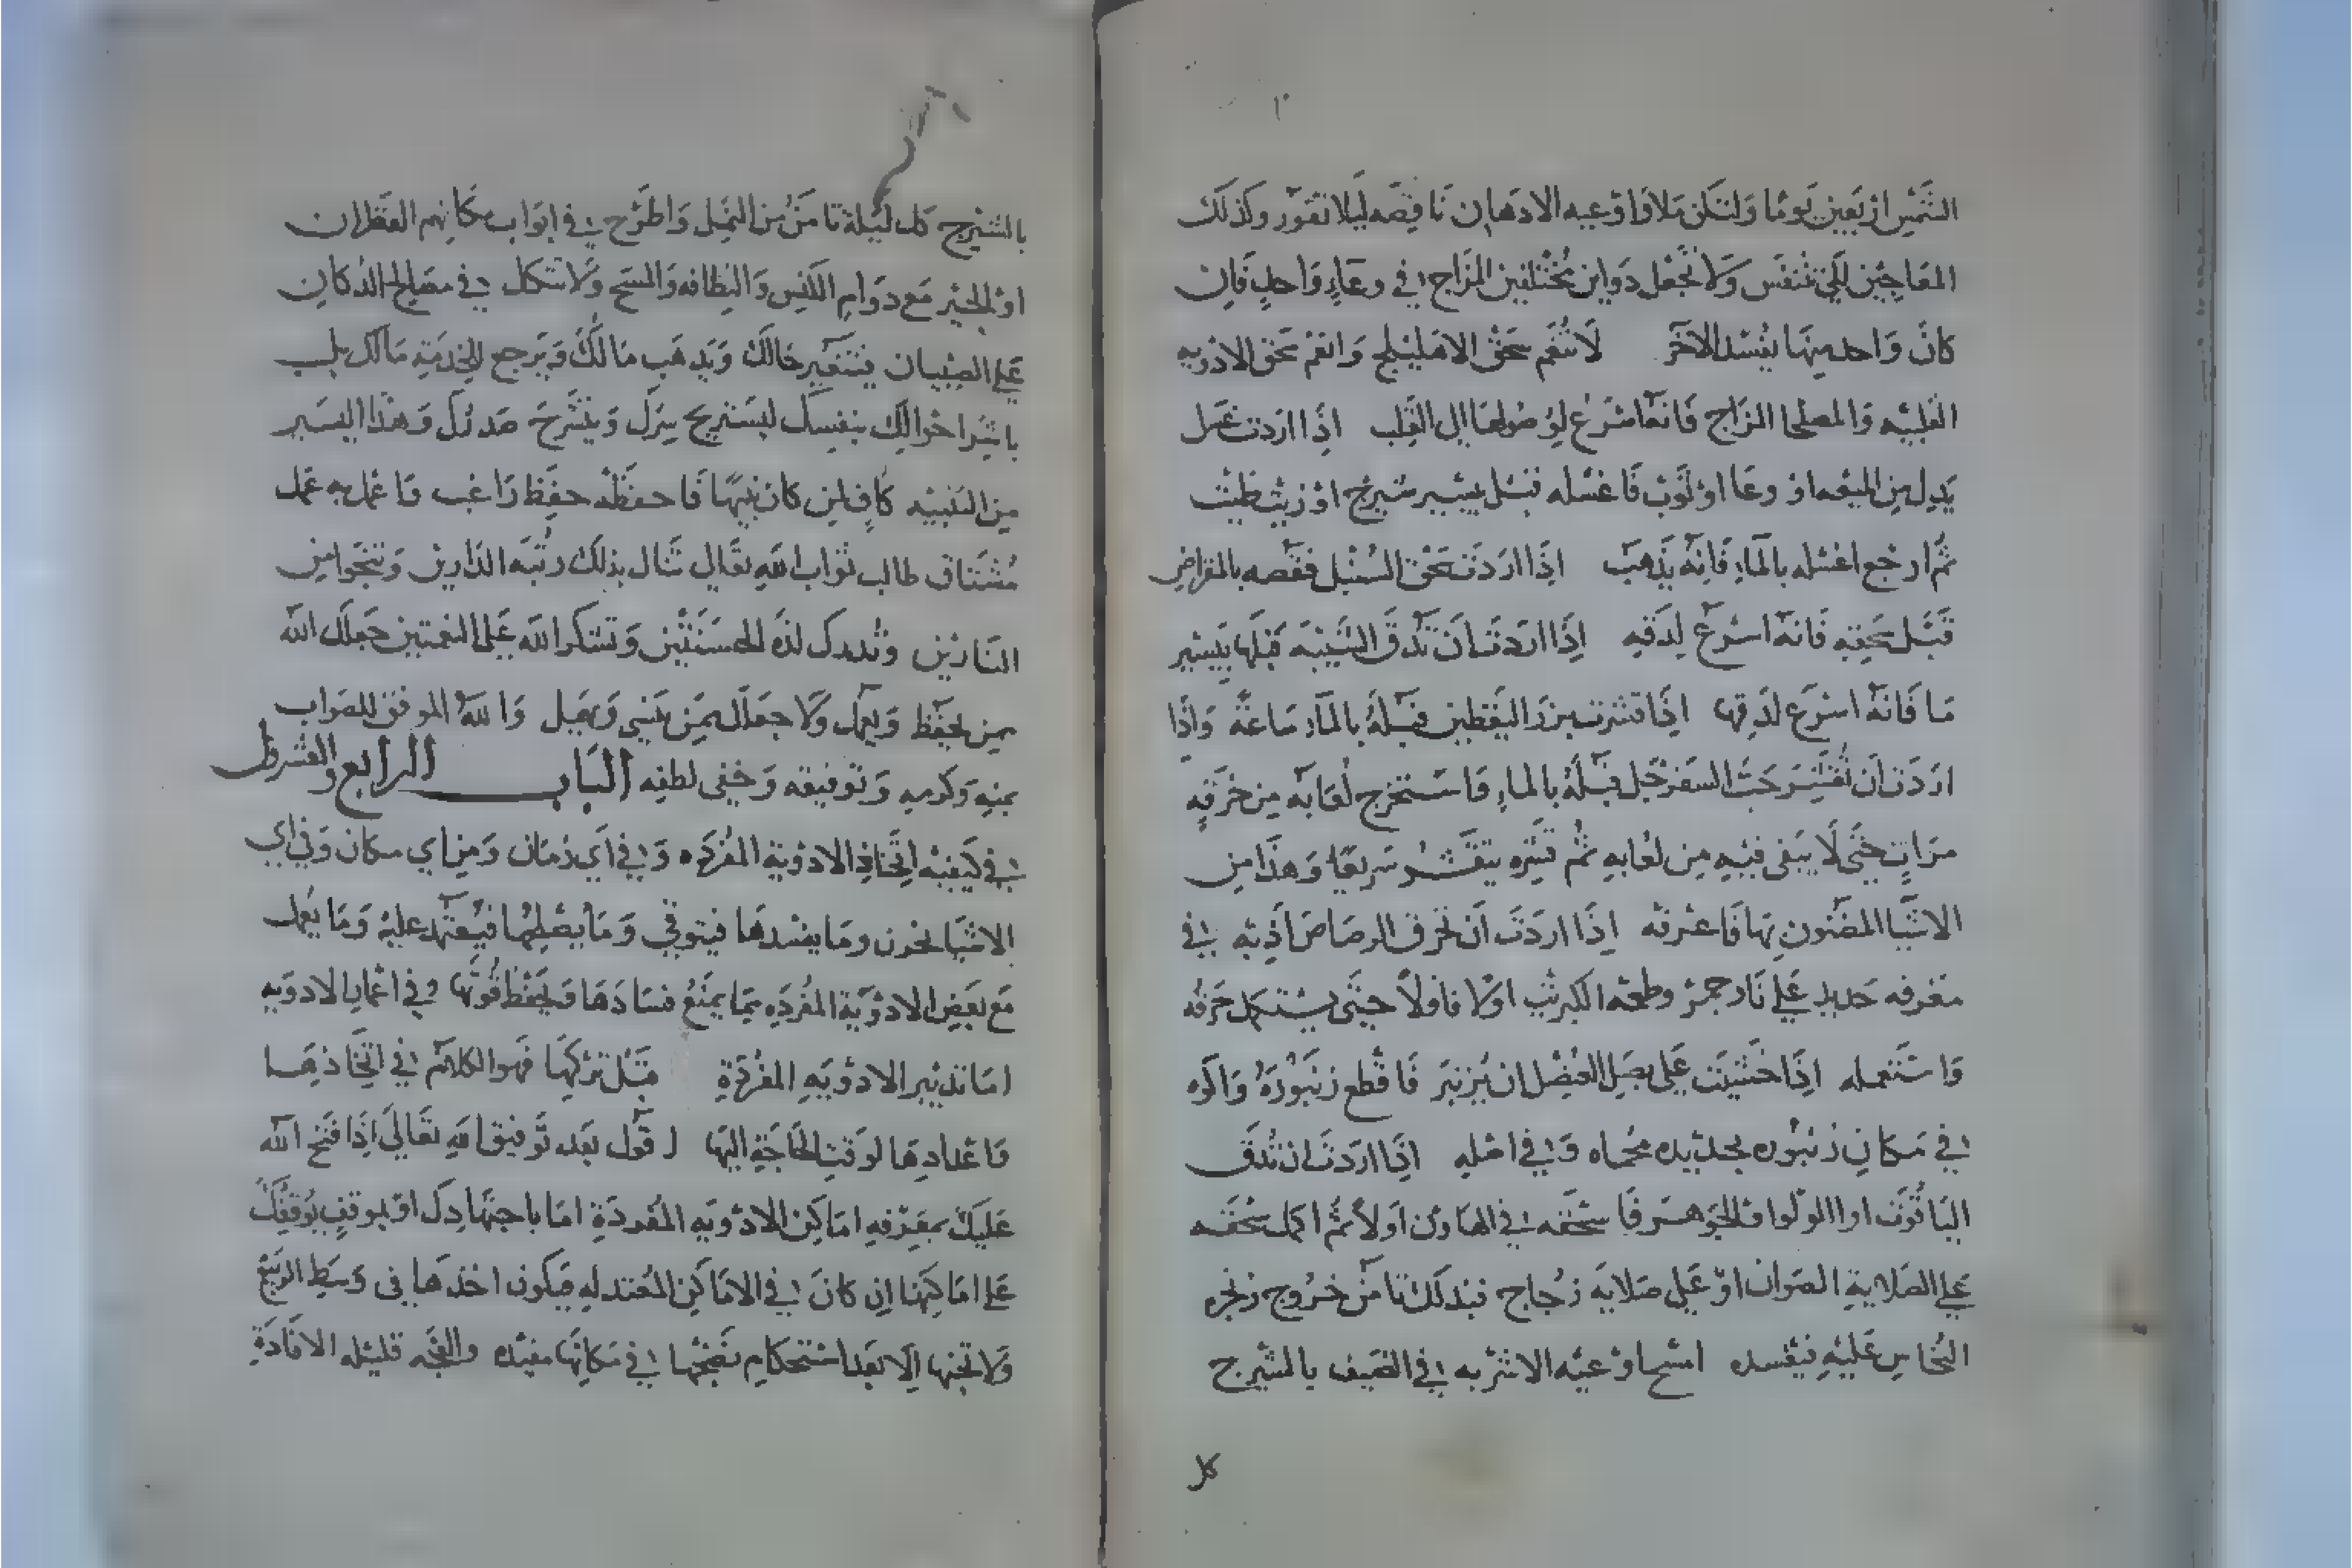 الشمس اربعين يوما ولتكن ملا اوعيه الادهان ناقصه ليلا تفور وكذلك
المعاجين لكي تتنفس ولا تجعل دواين مختلفين المزاج في وعاء واحد فان
كان واحد منها يفسد الاخر لا تنعم سحق الاهليلج وانعم سحق الادويه
القلبيه والمصلحا المزاج فانها اسرع لوصولها الى القلب اذا اردت غسل
يديك من الميعه او وعا او ثوب فاغسله قبل بيسير شيرج او زيت طيب
ثم ارجع اغسله بالماء فانه يذهب اذا اردت سحق السنبل فقصه بالمقراض
قبل سحقه فانه اسرع لدقه اذا اردت ان تدق الشيبه فبلها بيسير
ما فانه اسرع لدقها اذا قشرت بزر اليقطين فبله بالماء ساعة واذا
اردت ان تقشر حب السفرجل فبله بالماء واستخرج لعابه من خرقه
مرات حتى لا يبقى فيه من لعابه ثم قشره يتقشر سريعا وهذا من
الاشيا المضنون بها فاعرفه اذا اردت ان تحرق الرصاص اذبه في
مغرفه حديد على نار جمر وطعمه الكبريت اولا فاولا حتى يستكمل حرقه
واستعمله اذا خشيت على بصل العنصل ان يزنبر فاقطع زنبوره واكوه
في مكان زنبوره بحديده محماه وفي اصله اذا اردت ان تدق
الياقوت او اللولو او الجوهر فاسحقه في الهاون اولا ثم اكمل سحقه
على الصلاية الصوان او على صلايه زجاج فبذلك تامن خروج زنجره
النحاس عليه فيفسده امسح اوعيه الاشربه في الصيف بالشيرج
كل
بالشيرج كل ليلة تامن من النمل واطرح في ابواب مكانهم القطران
او الجير مع دوام الكنس والنظافه والمسح ولا تتكل في مصالح الدكان
على الصبيان فيتغير حالك ويذهب مالك ويرجع للخدمة مالك بل
باشر احوالك بنفسك ليستريح سرك وينشرح صدرك وهذا اليسير
من التنبيه كاف لمن كان نبيها فاحفظه حفظ راغب واعمل به عمل
مشتاق طالب ثواب الله تعالى تنال بذلك رتبه الدارين وتنجوا من
النارين وتدرك لذه الحسنتين وتشكر الله على النعمتين جعلك الله
ممن يحفظ ويعمل ولا جعلك ممن ينسي ويهمل والله الموفق للصواب
بمنه وكرمه وتوفيقه وخفي لطفه الباب الرابع والعشرون
في كيفيه اتخاذ الادوية المفرده وفي اي زمان ومن اي مكان وفي اي
الاشيا تخزن وما يفسدها فيتوقي وما يصلحها فيعتمد عليه وما يعمل
مع بعض الادوية المفرده مما يمنع فسادها ويحفظ قوتها وفي اعمار الادويه
اما تدبير الادويه المفردة قبل تركيبها فهو الكلام في اتخاذها
واعدادها لوقت الحاجة اليها اقول بعد توفيق الله تعالى اذا فتح الله
عليك بمعرفه اماكن الادويه المفردة اما باجتهادك او بموقف يوقفك
على اماكنها ان كان في الاماكن المعتدله فيكون اخذها في وسط الربيع
ولا تجنها الا بعد استحكام نضجها في مكانها مفيده والفجه قليله الافادة